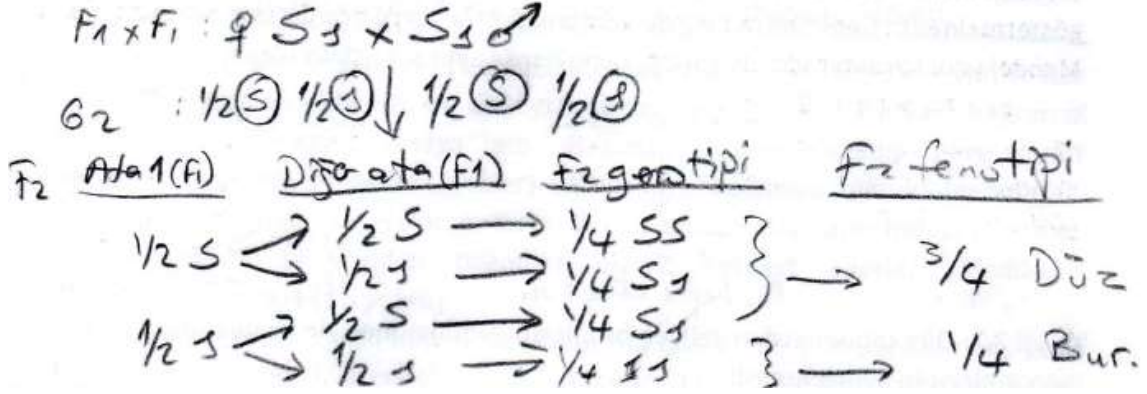 F1 x F1 : ♀ Ss x Ss ♂
G2 : 1/2 S 1/2 s ↓ 1/2 S 1/2 s
F2 Ata 1(F1) Diğer ata (F1) F2 genotipi F2 fenotipi
1/2 S → 1/2 S → 1/4 SS
→ 1/2 s → 1/4 Ss } → 3/4 Düz
1/2 s → 1/2 S → 1/4 Ss
→ 1/2 s → 1/4 ss } → 1/4 Bur.